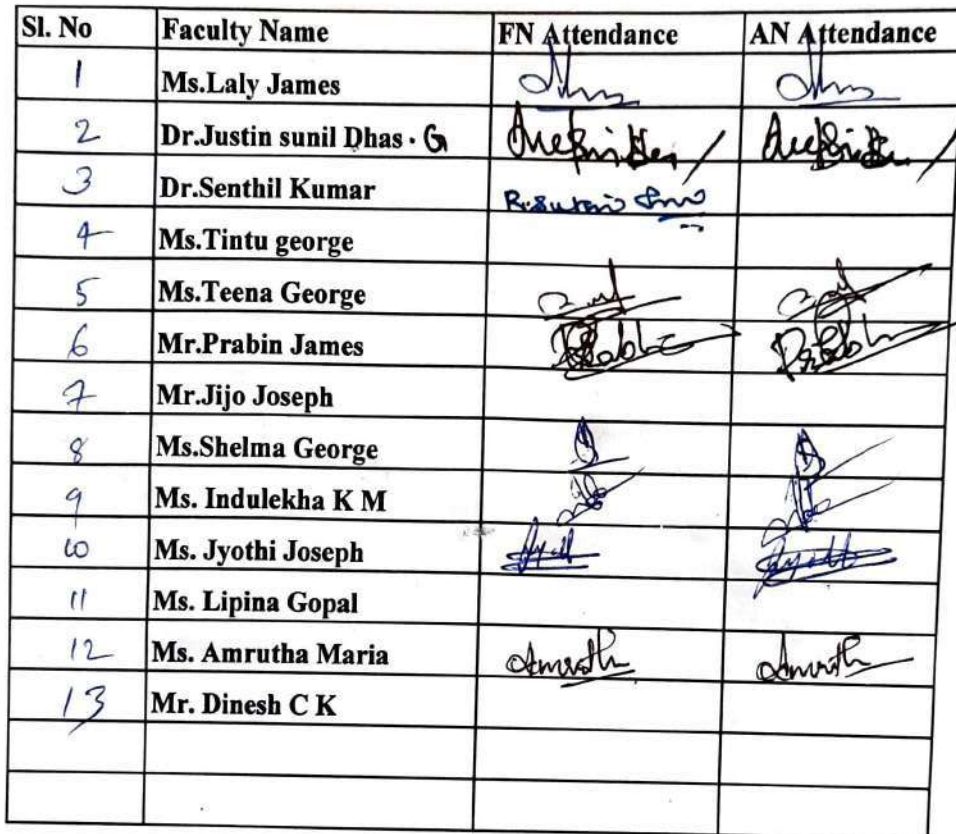 Sl. No Faculty Name FN Attendance AN Attendance
1 Ms.Laly James
2 Dr.Justin sunil Dhas . G
3 Dr.Senthil Kumar
4 Ms.Tintu george
5 Ms.Teena George
6 Mr.Prabin James
7 Mr.Jijo Joseph
8 Ms.Shelma George
9 Ms. Indulekha K M
10 Ms. Jyothi Joseph
11 Ms. Lipina Gopal
12 Ms. Amrutha Maria
13 Mr. Dinesh C K